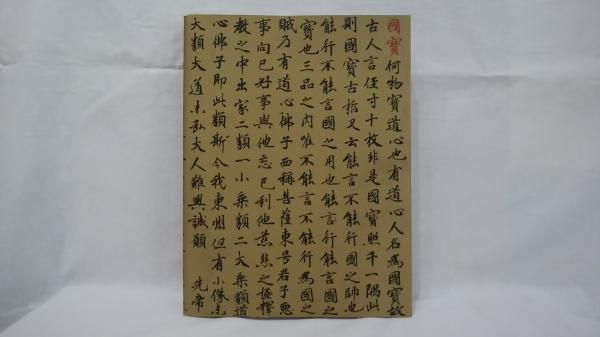 國寶何物寶道心也有道心人名為國寶故
古人言徑寸十枚非是國寶照千一隅此
則國寶古哲又云能言不能行國之師也
能行不能言國之用也能行能言國之
寶也三品之内唯不能言不能行為國之
賊乃有道心佛子西稱菩薩東号君子惡
事向己好事與他忘己利他慈悲之極釋
教之中出家二類一小乘類二大乘類道
心佛子即此類斯今我東州但有小像未
大類大道未弘大人難興誠願 先帝